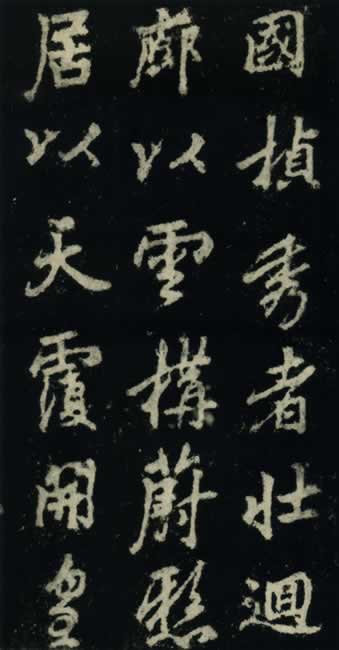 國楨秀者壯迴
廊以雲構蔚懸
居以天霞開皇